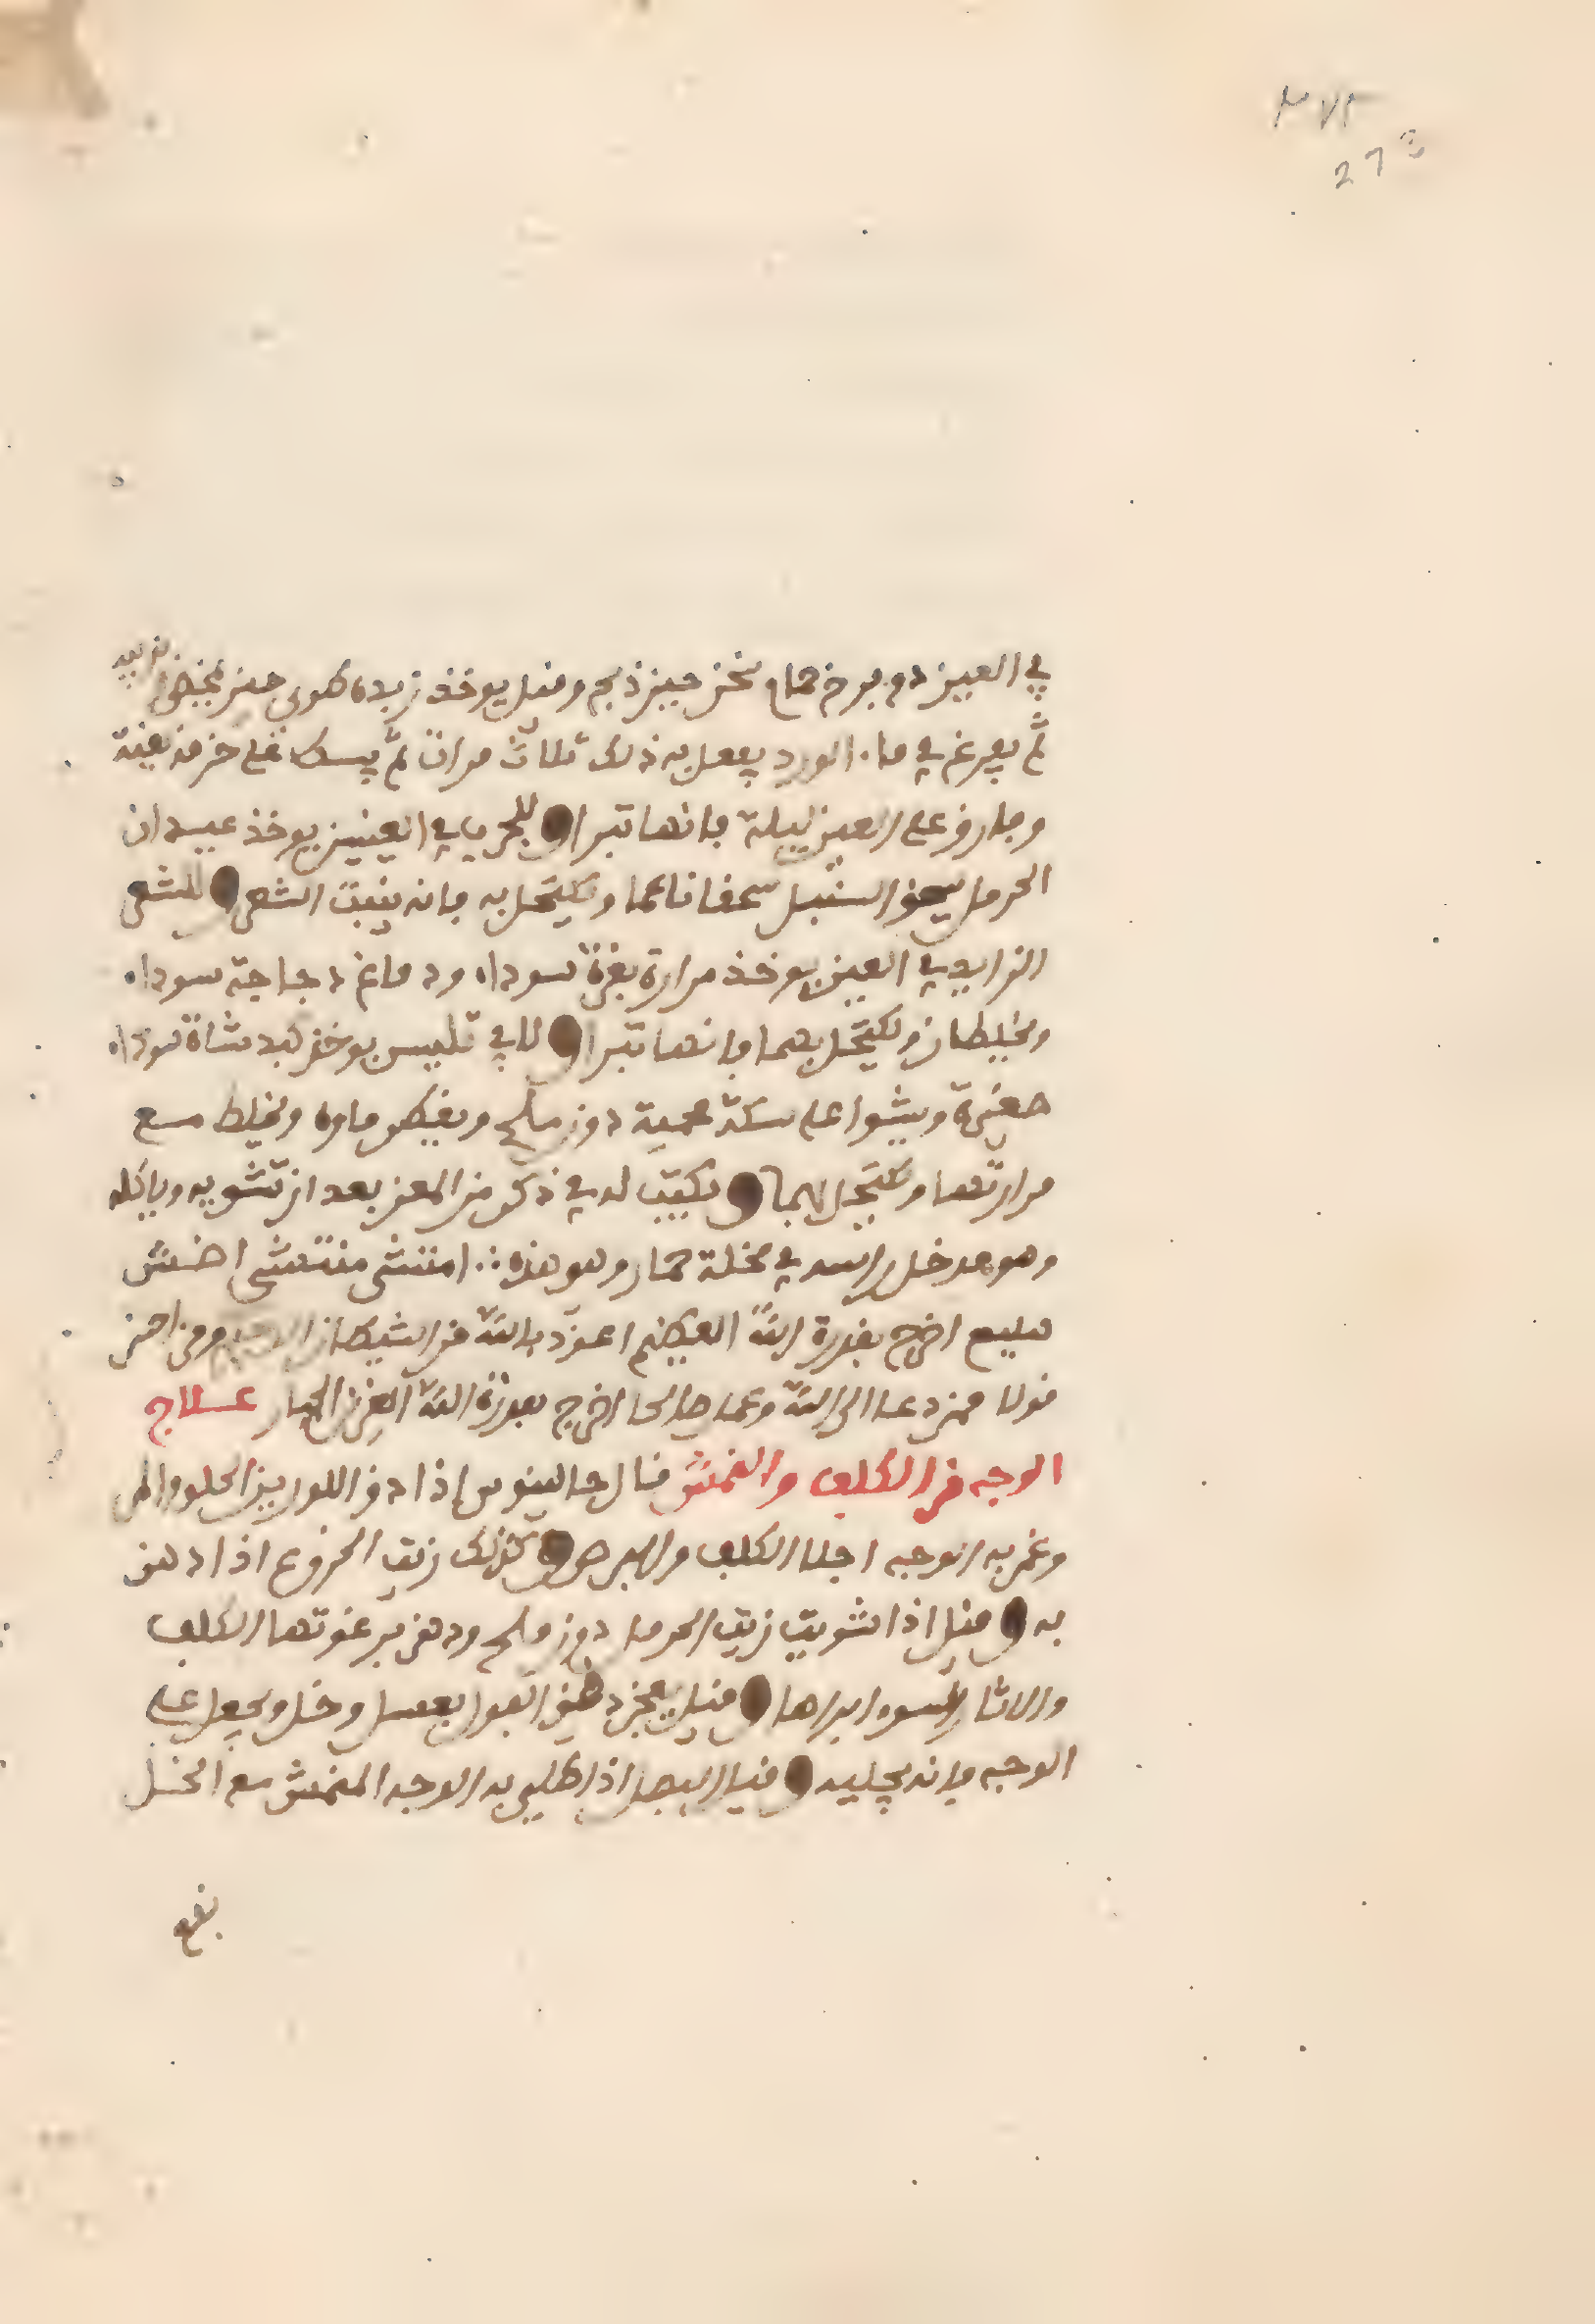 ٢٧٣
273
في العين دم برخ حمام سخن حين ذبح وقيل يوخذ زبدة طوبى حتى
ثم يفرغ في ماء الورد يفعل به ذلك ثلاث مرات ثم يمسك على خرقة نقية
على العين ليلة فانها تبرا وللجرب في العينين يوخذ عيدان
الحرمل السنبل سحفا ناعما ويكتحل به فانه ينبت الشعر وللشعر
الزايد في العين يوخذ مرارة بقرة سوداء ودماغ دجاجة سوداء
ويخلطان ويكتحل بهما فانها تبرا و يوخذ كبد شاة سوداء
صغيرة ويشوا على سكة محمية دون ملح ويقطر ماوه ويخلط مع
مرارتها ويكتحل بهما ويكتب له في ذكر من المعز بعد ان تشويه وياكله
وهو مدخل راسه في مخلة حمار وهو هذه ∴
اخرج بقدرة الله العظيم اعوذ بالله من الشيطان الرجيم ومن احسن
قولا ممن دعا الى الله وعمل صالحا اخرج بعزة الله العزيز الجبار علاج
الوجه من الكلف والنمش قال جالينوس اذا دق اللوز بين الحلو والمر
وغمر به الوجه اجلا الكلف والبرص وكذلك زيت الخروع اذا دهن
به وقيل اذا شويت زيت الحرمل دون ملح ودهن برغوتها الكلف
والاثار السود ابراها وقيل يعجن دقيق الفول بعسل وخل ويجعل على
الوجه فانه يجليه وقيل البصل اذا طلي به الوجه المنمش مع الخل
نفع